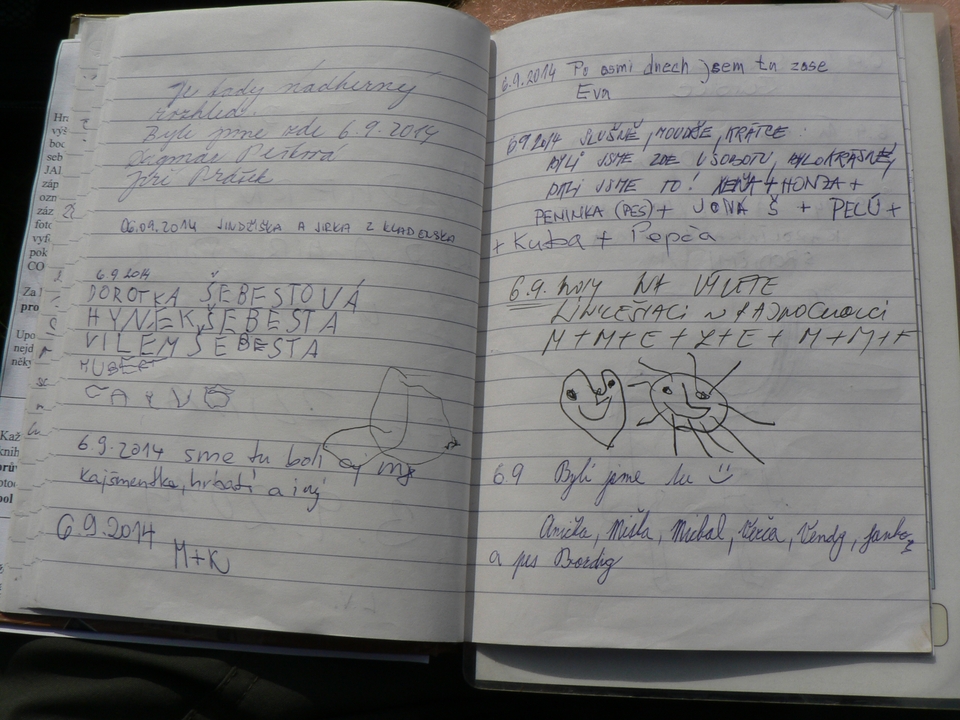 Je tady nádherný
rozhled.
Byli jsme zde 6.9.2014
Dagmar
Jiří Prášek
06.09.2014 JINDŘIŠKA A JIRKA Z KLADENSKA
6.9.2014
DOROTKA ŠEBESTOVÁ
HYNEK ŠEBESTA
VILÉM ŠEBESTA
HUBERT
6.9.2014 sme tu boli aj my
kajšmentke, hrbatí a iný
6.9.2014
M+K
6.9.2014 Po osmi dnech jsem tu zase
Eva
6.9.2014 SLUŠNĚ, MOUDŘE, KRÁTCE:
BYLI JSME ZDE V SOBOTU, BYLO KRÁSNĚ,
DALI JSME TO! + HONZA +
PENINKA (PES) + JONÁŠ + PELÚ +
+ Kuba + Pepča
6.9. 2014 NA VÝLETE
M + M + E + L + E + M + M + F
6.9 Byli jsme tu
Anička, Miška, Michal, Verča, Vendy, Janka,
a pes
Hra
výš
boc
seb
JAI
záp
ozn
záz
foto
vyf
pok
CO
Za l
pro
Upo
nejd
něky
Kaž
knih
prův
otoc
bol